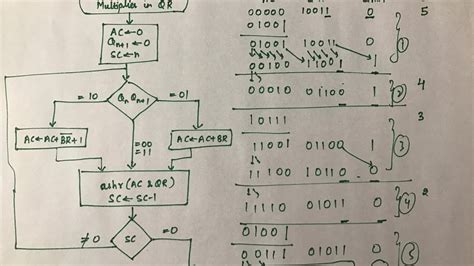 Multiplier in QR
AC←0
Qn+1←0
SC←n
Qn Qn+1
=10
=01
AC←AC+BR+1
=00
=11
AC←AC+BR
ashr (AC & QR)
SC←SC-1
≠0
SC
=0
00000 10011 0 5
01001
01001 10011 0
00100 11001 1 ①
00010 01100 1 ② 4
10111 3
11001 01100 1
11100 10110 0 ③
11110 01011 0 ④ 2
01001
00111 01011 0 ⑤